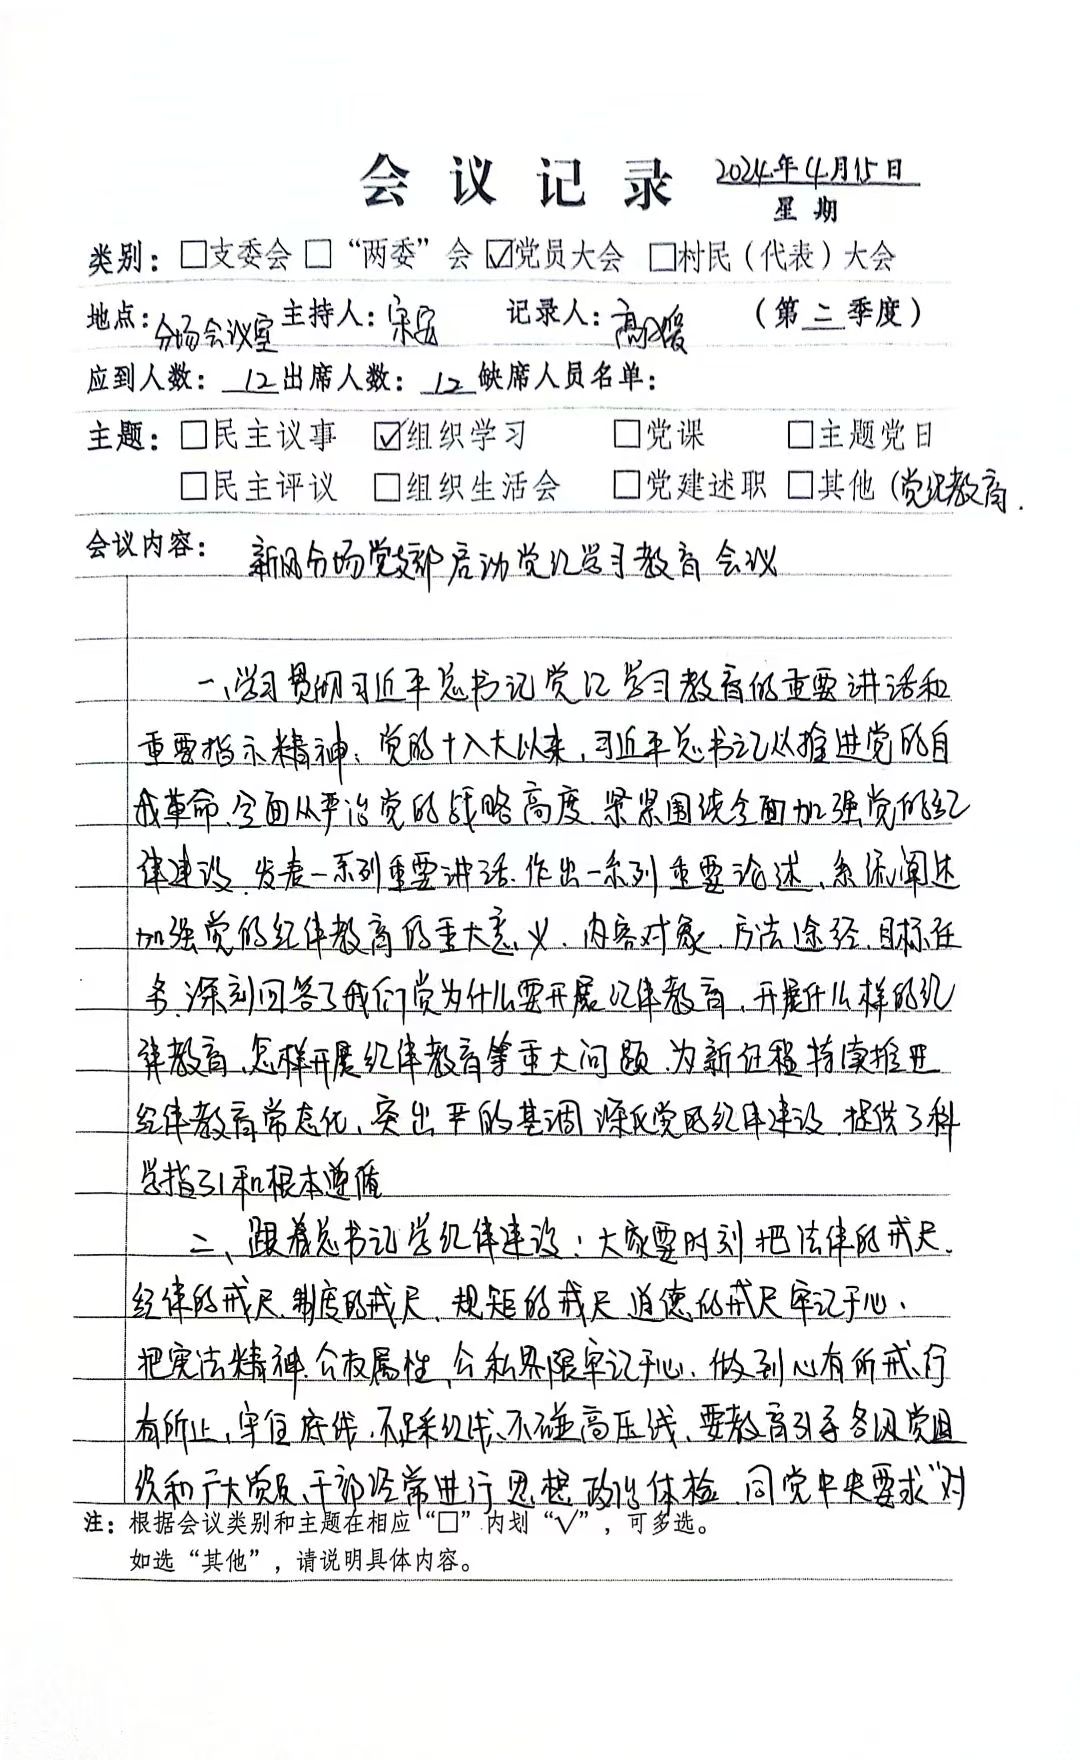 会议记录 2024年4月15日
星期
类别：□支委会 □“两委”会 ☑党员大会 □村民（代表）大会
地点：分场会议室 主持人：宋宏 记录人：高媛 （第二季度）
应到人数：12 出席人数：12 缺席人员名单：
主题：□民主议事 ☑组织学习 □党课 □主题党日
□民主评议 □组织生活会 □党建述职 □其他（党纪教育．
会议内容：新风分场党支部启动党纪学习教育会议
一、学习贯彻习近平总书记党纪学习教育的重要讲话和
重要指示精神：党的十八大以来，习近平总书记从推进党的自
我革命、全面从严治党的战略高度、紧紧围绕全面加强党的纪
律建设、发表一系列重要讲话、作出一系列重要论述、系统阐述
加强党的纪律教育的重大意义、内容对象、方法途经、目标任
务、深刻回答了我们党为什么要开展纪律教育、开展什么样的纪
律教育、怎样开展纪律教育等重大问题、为新征程持续推进
纪律教育常态化、突出严的基调深化党的纪律建设、提供了科
学指引和根本遵循
二、跟着总书记学纪律建设：大家要时刻把法律的戒尺、
纪律的戒尺、制度的戒尺、规矩的戒尺 道德的戒尺牢记于心、
把宪法精神、公权属性、公私界限牢记于心、做到心有所戒、行
有所止、守住底线、不踩红线、不碰高压线、要教育引导各级党组
织和广大党员、干部经常进行思想政治体检、同党中央要求“对
注：根据会议类别和主题在相应“□”内划“√”，可多选。
如选“其他”，请说明具体内容。